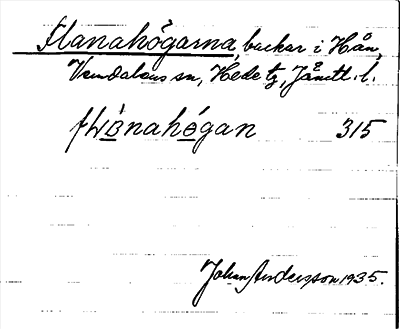 Flanahögarna, backar i Hån,
Vemdalens sn, Hede tg, Jämtl. l.
flånahögan 315
Johan Andersson 1935.